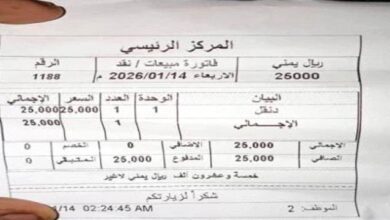 المركز الرئيسي
ريال يمني فاتورة مبيعات / نقد الرقم
25000 الاربعاء 2026/01/14 م 1188
البيان الوحدة العدد السعر الإجمالي
دنقل 1 25,000 25,000
الإجمالي 1 25,000
الإجمالي 25,000 الاضافي 0 الخصم 0
الصافي 25,000 المدفوع 25,000 المتبقي 0
خمسة وعشرون ألف ريال يمني لاغير
شكراً لزيارتكم
الموظف: 2 1/14 02:24:45 AM